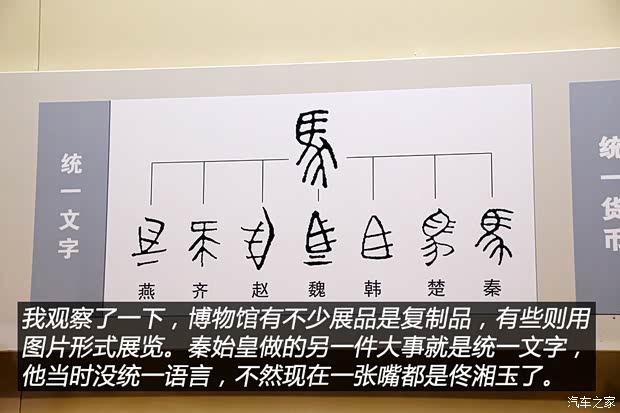 统一文字
馬
燕 齐 赵 魏 韩 楚 秦
统一货币
我观察了一下，博物馆有不少展品是复制品，有些则用
图片形式展览。秦始皇做的另一件大事就是统一文字，
他当时没统一语言，不然现在一张嘴都是佟湘玉了。
汽车之家